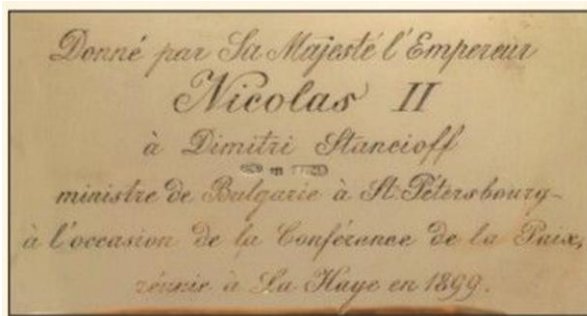 Donné par Sa Majesté l'Empereur
Nicolas II
à Dimitri Stancioff
ministre de Bulgarie à St. Pétersbourg
à l'occasion de la Conférence de la Paix,
réunie à La Haye en 1899.